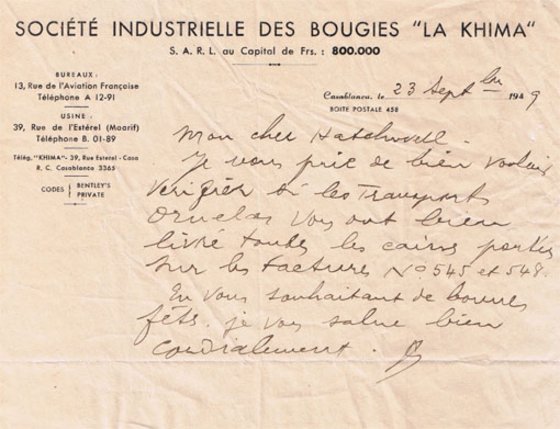 SOCIÉTÉ INDUSTRIELLE DES BOUGIES "LA KHIMA"
S. A. R. L. au Capital de Frs. : 800.000
BUREAUX :
13, Rue de l'Aviation Française
Téléphone A 12-91
USINE :
39, Rue de l'Estérel (Maarif)
Téléphone B. 01-89
Télég. "KHIMA"- 39, Rue Esterel - Casa
R. C. Casablanca 3365
CODES { BENTLEY'S
PRIVATE
Casablanca, le 23 Septbre 1949
BOITE POSTALE 458
Mon cher
Je vous prie de bien vouloir
verifier si les Transports
Ornelas vous ont bien
livré toutes les caisses portées
sur les factures No 545 et 548.
En vous souhaitant de bonnes
fêtes. je vous salue bien
cordialement.